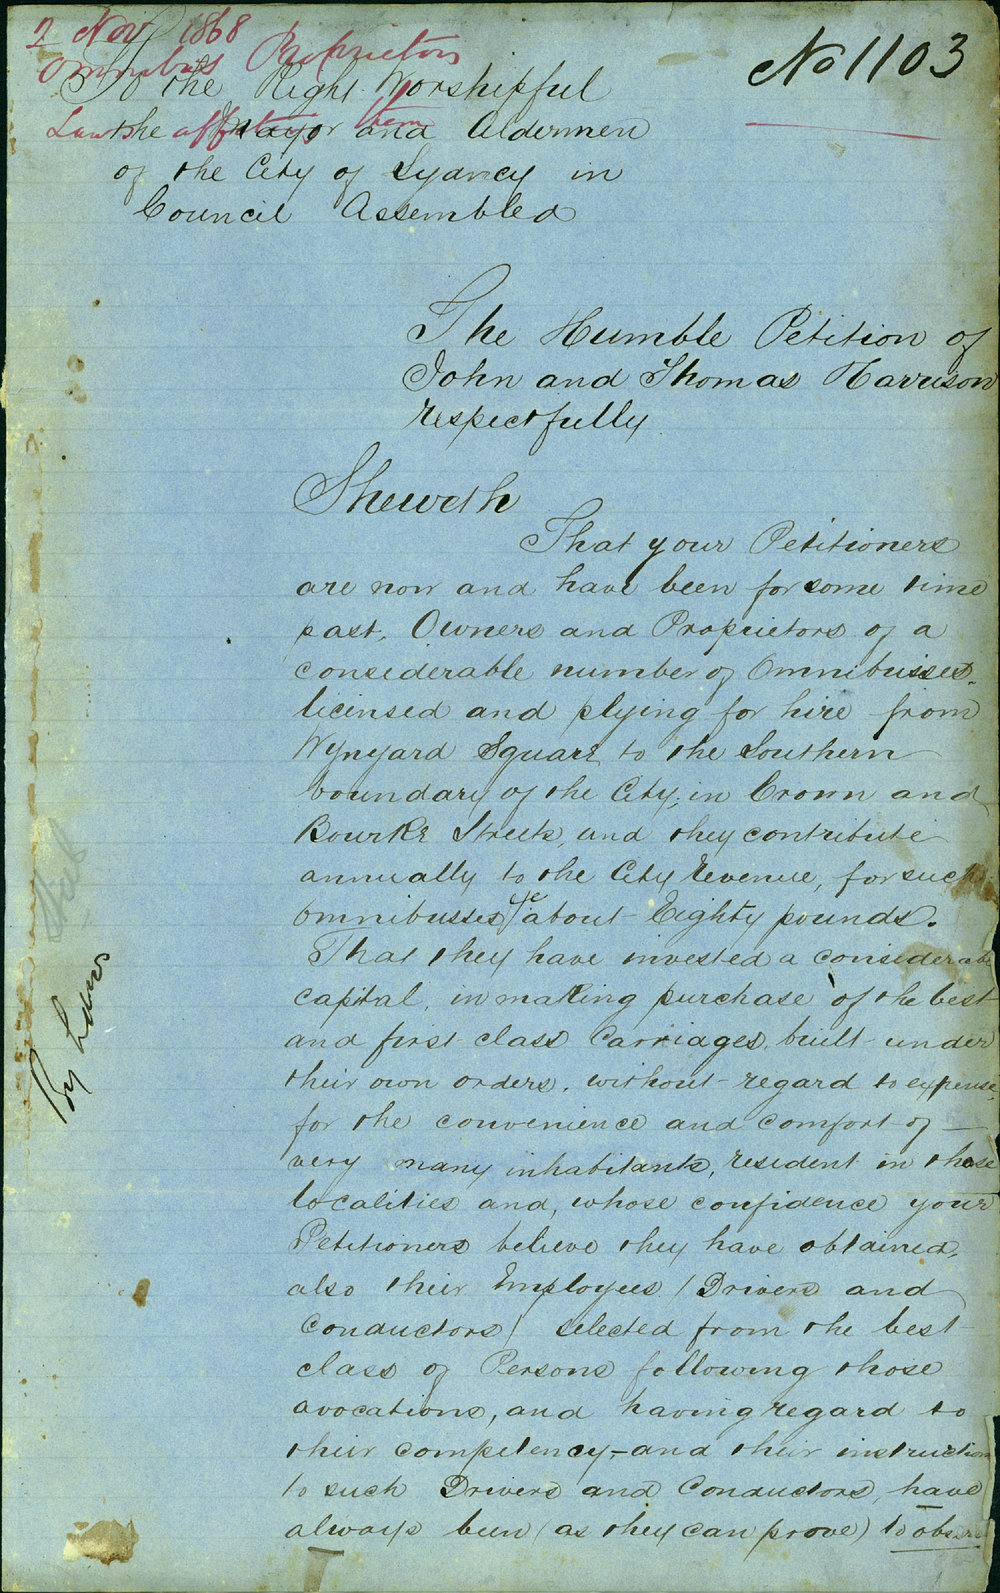 2 Nov 1868
Omnibus Proprietors
Laws affecting them
No 1103
To the Right Worshipful
the Mayor and Aldermen
of the City of Sydney in
Council Assembled
The Humble Petition of
John and Thomas Harrison
respectfully
Sheweth
That your Petitioners
are now and have been for some time
past, Owners and Proprietors of a
considerable number of Omnibusses
licensed and plying for hire from
Wynyard Square to the Southern
boundary of the City, in Crown and
Bourke Streets, and they contribute
annually to the City Revenue, for such
Omnibusses &c about Eighty pounds.
That they have invested a considerable
capital, in making purchase of the best
and first class Carriages, built under
their own orders, without regard to expense,
for the convenience and comfort of
very many inhabitants, resident in those
localities and, whose confidence your
Petitioners believe they have obtained,
also their Employees (Drivers and
Conductors) selected from the best
class of Persons following those
avocations, and having regard to
their competency, and their instruction
to such Drivers and Conductors, have
always been (as they can prove) to observe
By Laws